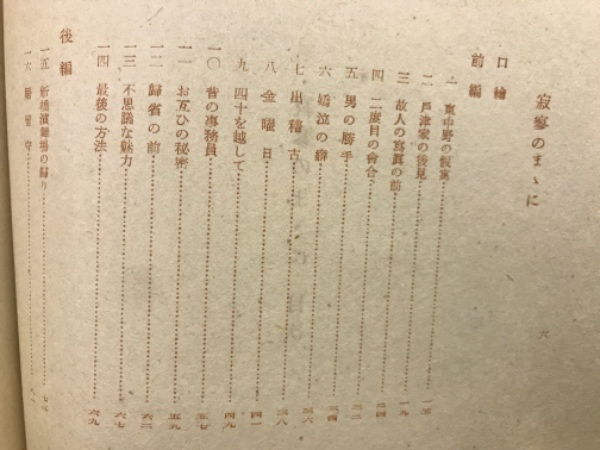 寂寥のまゝに
六
口繪
前編
一 東中野の假寓 一五
二 戸津家の後見 一九
三 故人の寫眞の前 二四
四 二度目の會合
五 男の勝手
六 嬌泣の癖
七 出稽古 三八
八 金曜日 四一
九 四十を越して 四九
一〇 昔の事務員 五七
一一 お互ひの秘密 五九
一二 歸省の前 六二
一三 不思議な魅力 六七
一四 最後の方法 六九
後編
一五 新橋演舞場の歸り 七
一六 留守